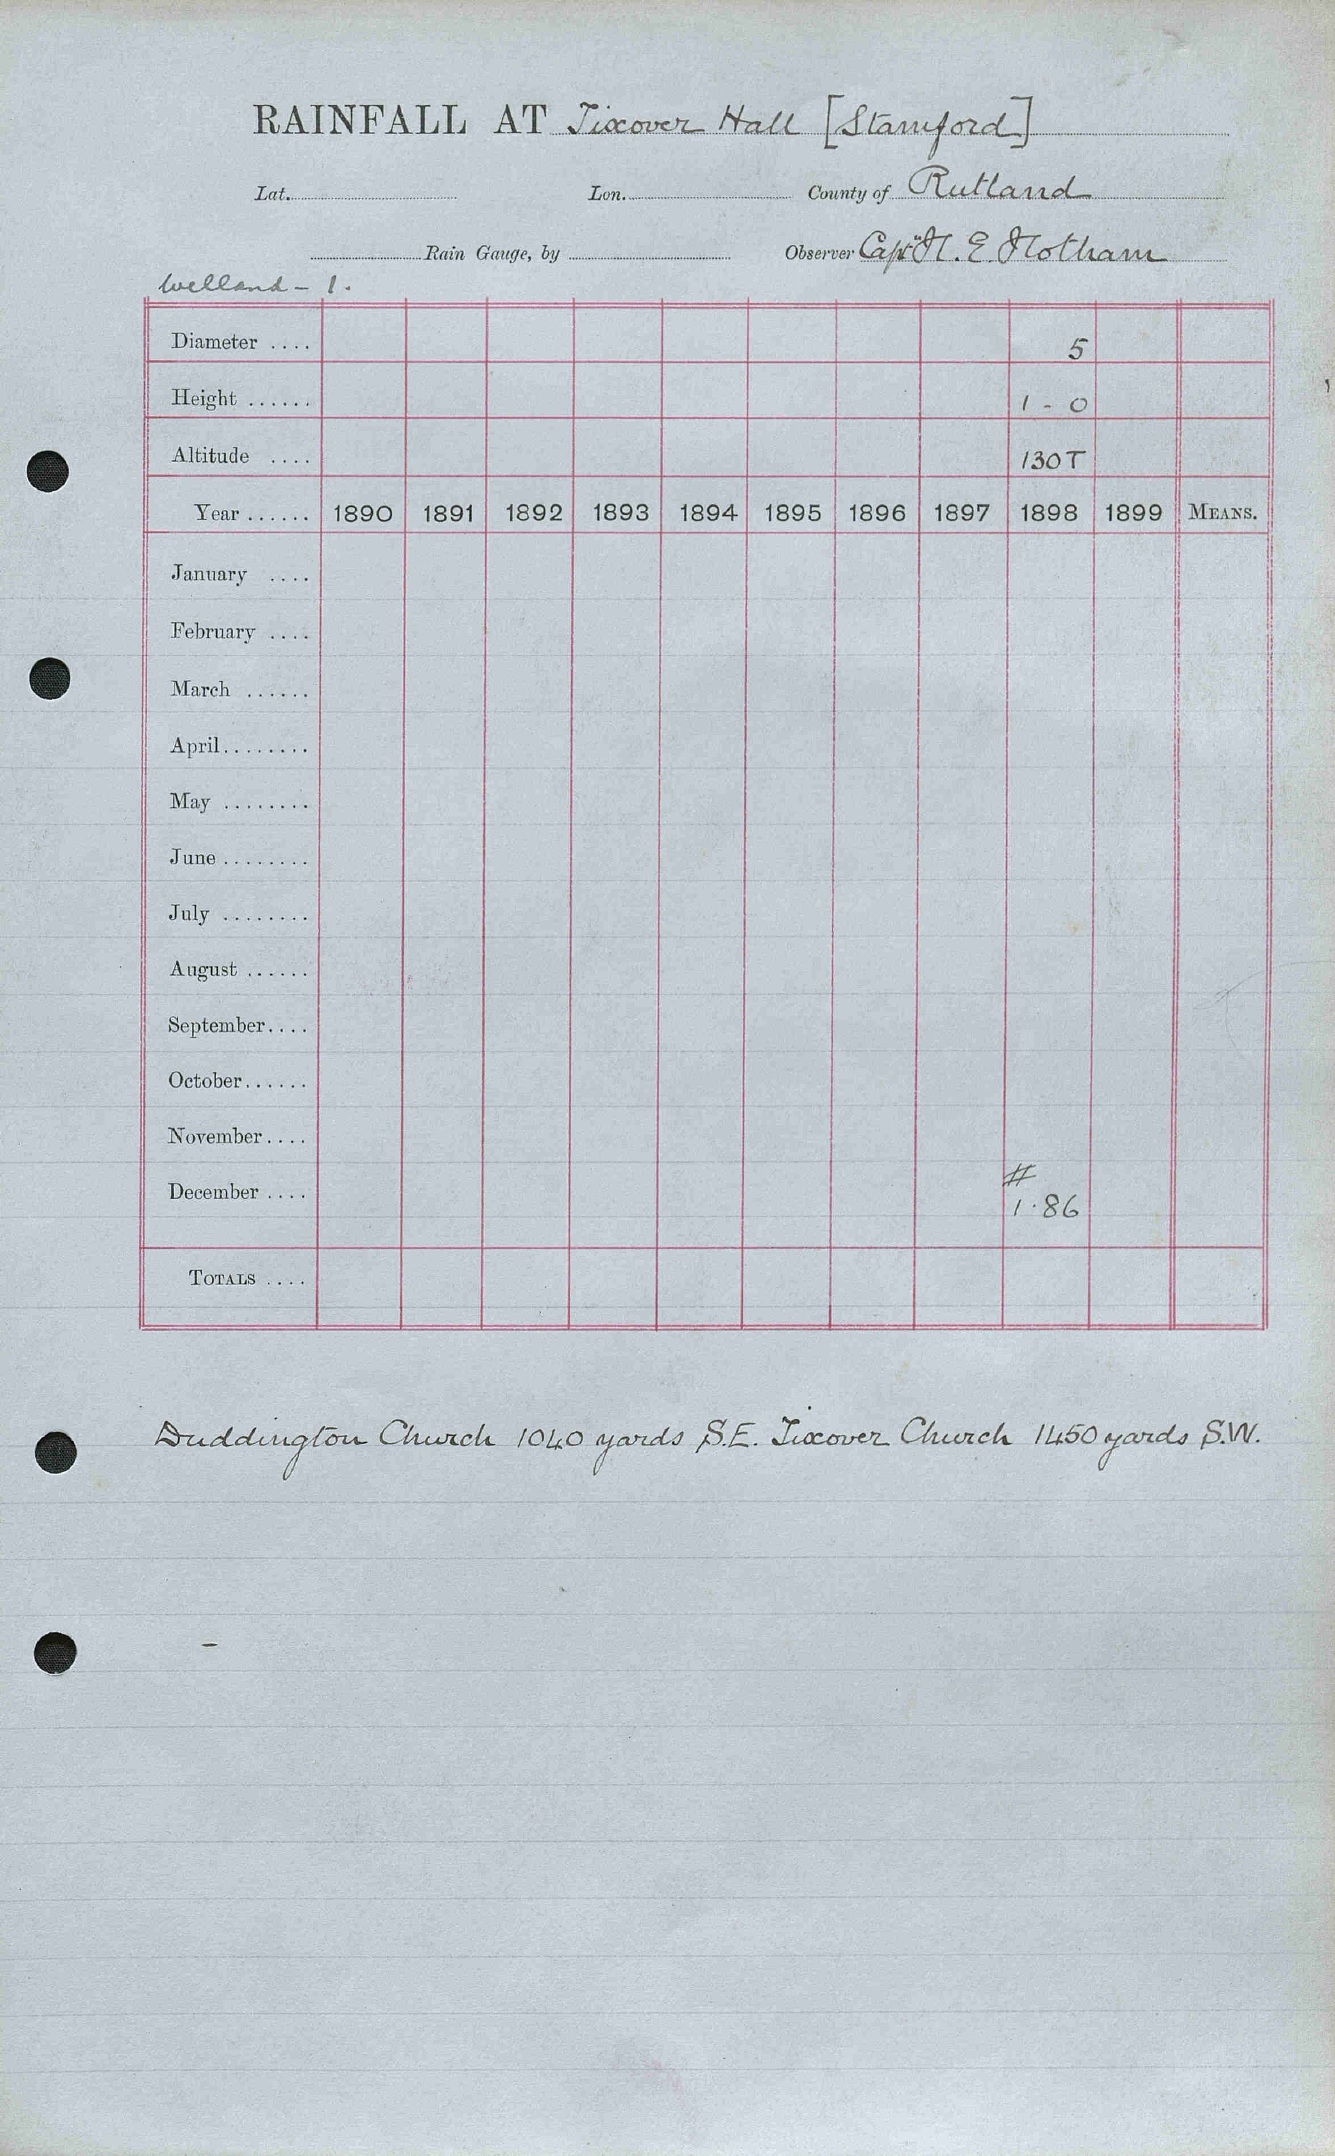 RAINFALL AT Tixover Hall [Stamford]
Lat. Lon. County of Rutland
Rain Gauge, by Observer Captn H. E. Hotham
Welland - 1.
Diameter .... 5
Height ...... 1 - 0
Altitude .... 130 T
Year ...... 1890 1891 1892 1893 1894 1895 1896 1897 1898 1899 MEANS.
January ....
February ....
March ......
April ........
May ........
June ........
July ........
August ......
September ....
October ......
November ....
December .... # 1.86
TOTALS ....
Duddington Church 1040 yards S.E. Tixover Church 1450 yards S.W.